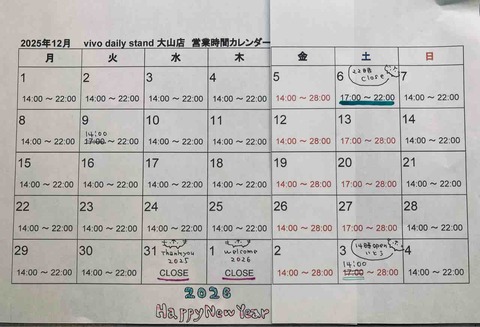 2025年12月 vivo daily stand 大山店 営業時間カレンダー
月 火 水 木 金 土 日
1 2 3 4 5 6 22時 close 7
14:00 ～ 22:00 14:00 ～ 22:00 14:00 ～ 22:00 14:00 ～ 22:00 14:00 ～ 28:00 17:00 ～ 22:00 14:00 ～ 22:00
8 9 10 11 12 13 14
14:00
14:00 ～ 22:00 17:00 ～ 22:00 14:00 ～ 22:00 14:00 ～ 22:00 14:00 ～ 28:00 17:00 ～ 28:00 14:00 ～ 22:00
15 16 17 18 19 20 21
14:00 ～ 22:00 14:00 ～ 22:00 14:00 ～ 22:00 14:00 ～ 22:00 14:00 ～ 28:00 17:00 ～ 28:00 14:00 ～ 22:00
22 23 24 25 26 27 28
14:00 ～ 22:00 14:00 ～ 22:00 14:00 ～ 22:00 14:00 ～ 22:00 14:00 ～ 28:00 17:00 ～ 28:00 14:00 ～ 22:00
29 30 31 1 2 3 14時open 4
Thankyou 2025 welcome 2026 14:00
14:00 ～ 22:00 14:00 ～ 22:00 CLOSE CLOSE 14:00 ～ 28:00 17:00 ～ 28:00 14:00 ～ 22:00
2026
Happy New Year